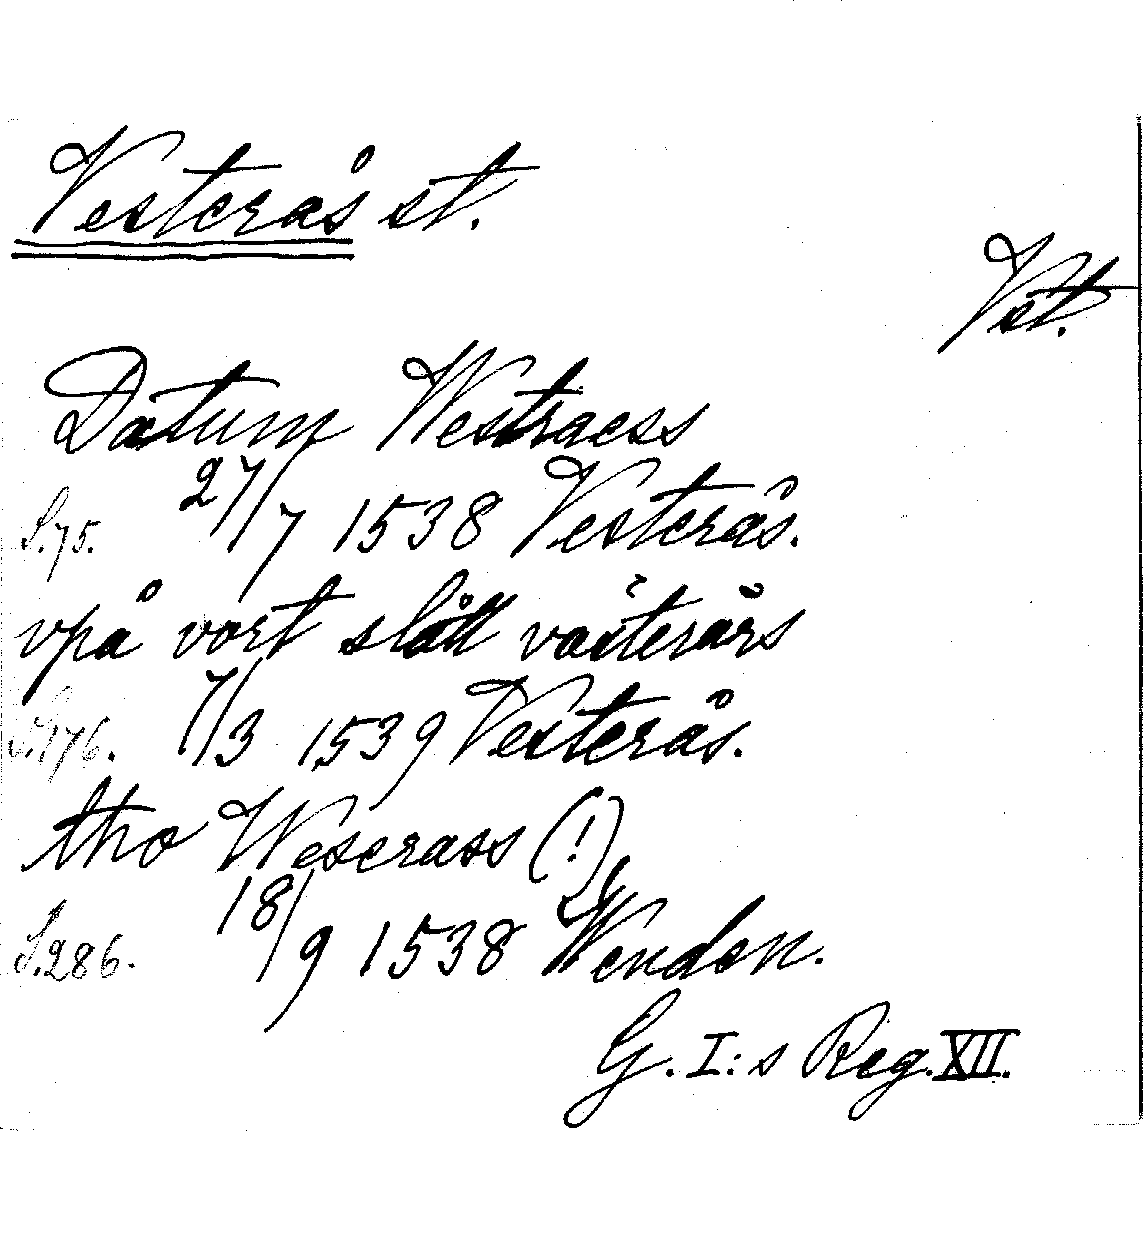 Vesterås st.
Vst.
Datum Westraess
S.75. 27/7 1538 Vesterås.
vpå vort slått västerårs
S.176. 7/3 1539 Vesterås.
tho Weserass (!)
S.286. 18/9 1538 Wenden.
G. I:s Reg. XII.